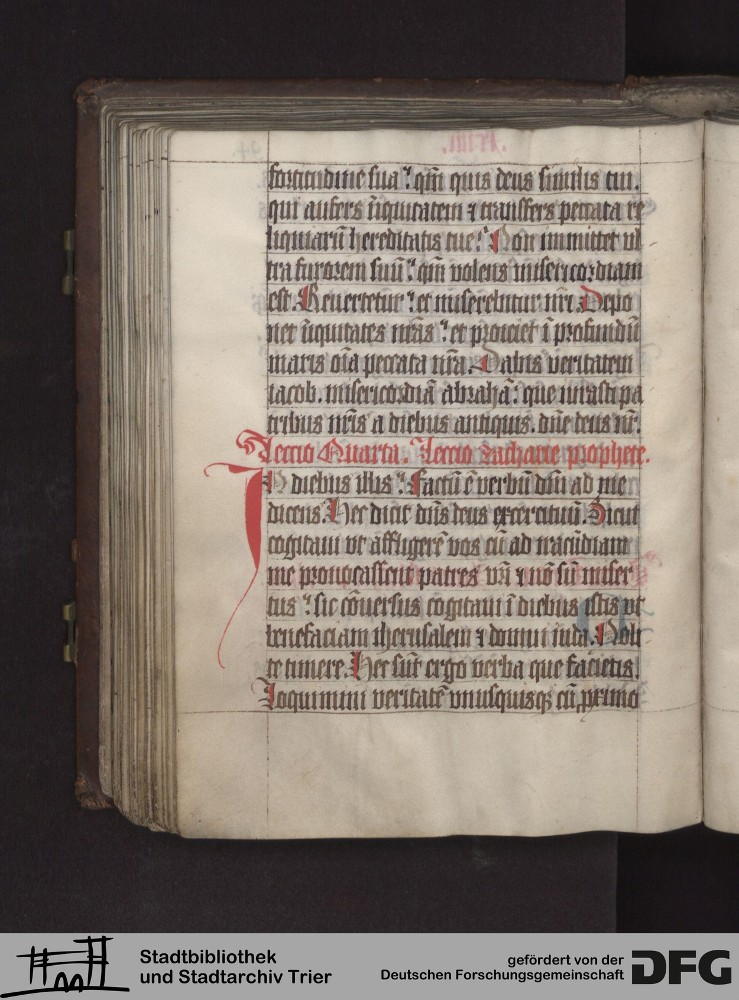 fortitudine sua. qm̄ quis deus similis tui.
qui aufers īiquitatem ⁊ transfers peccata re
liquiarū hereditatis tue. Non immittet ul
tra furorem suū. qm̄ volens misericordiam
est. Reuertetur. et miserebitur nr̄i. Depo
net īiquitates nr̄as. et proiciet ī profundū
maris oīa peccata nr̄a. Dabis veritatem
iacob. misericordiā abrahā. que iurasti pa
tribus nr̄is a diebus antiquis. dn̄e deus nr̄.
Leccio Quarta. Leccio zacharie prophete.
IN diebus illis. Factū ē verbū dn̄i ad me
dicens. Hec dicit dn̄s deus exercituū. Sicut
cogitaui vt affligerē vos cū ad iracūdiam
me prouocassent patres vr̄i ⁊ nō sū miser
tus. sic cōuersus cogitaui ī diebus istis vt
benefaciam iherusalem ⁊ domui iuda. Noli
te timere. Hec sūt ergo verba que facietis.
Loquimini veritatē vnusquisqꝫ cū proximo
Stadtbibliothek
und Stadtarchiv Trier
gefördert von der
Deutschen Forschungsgemeinschaft
DFG